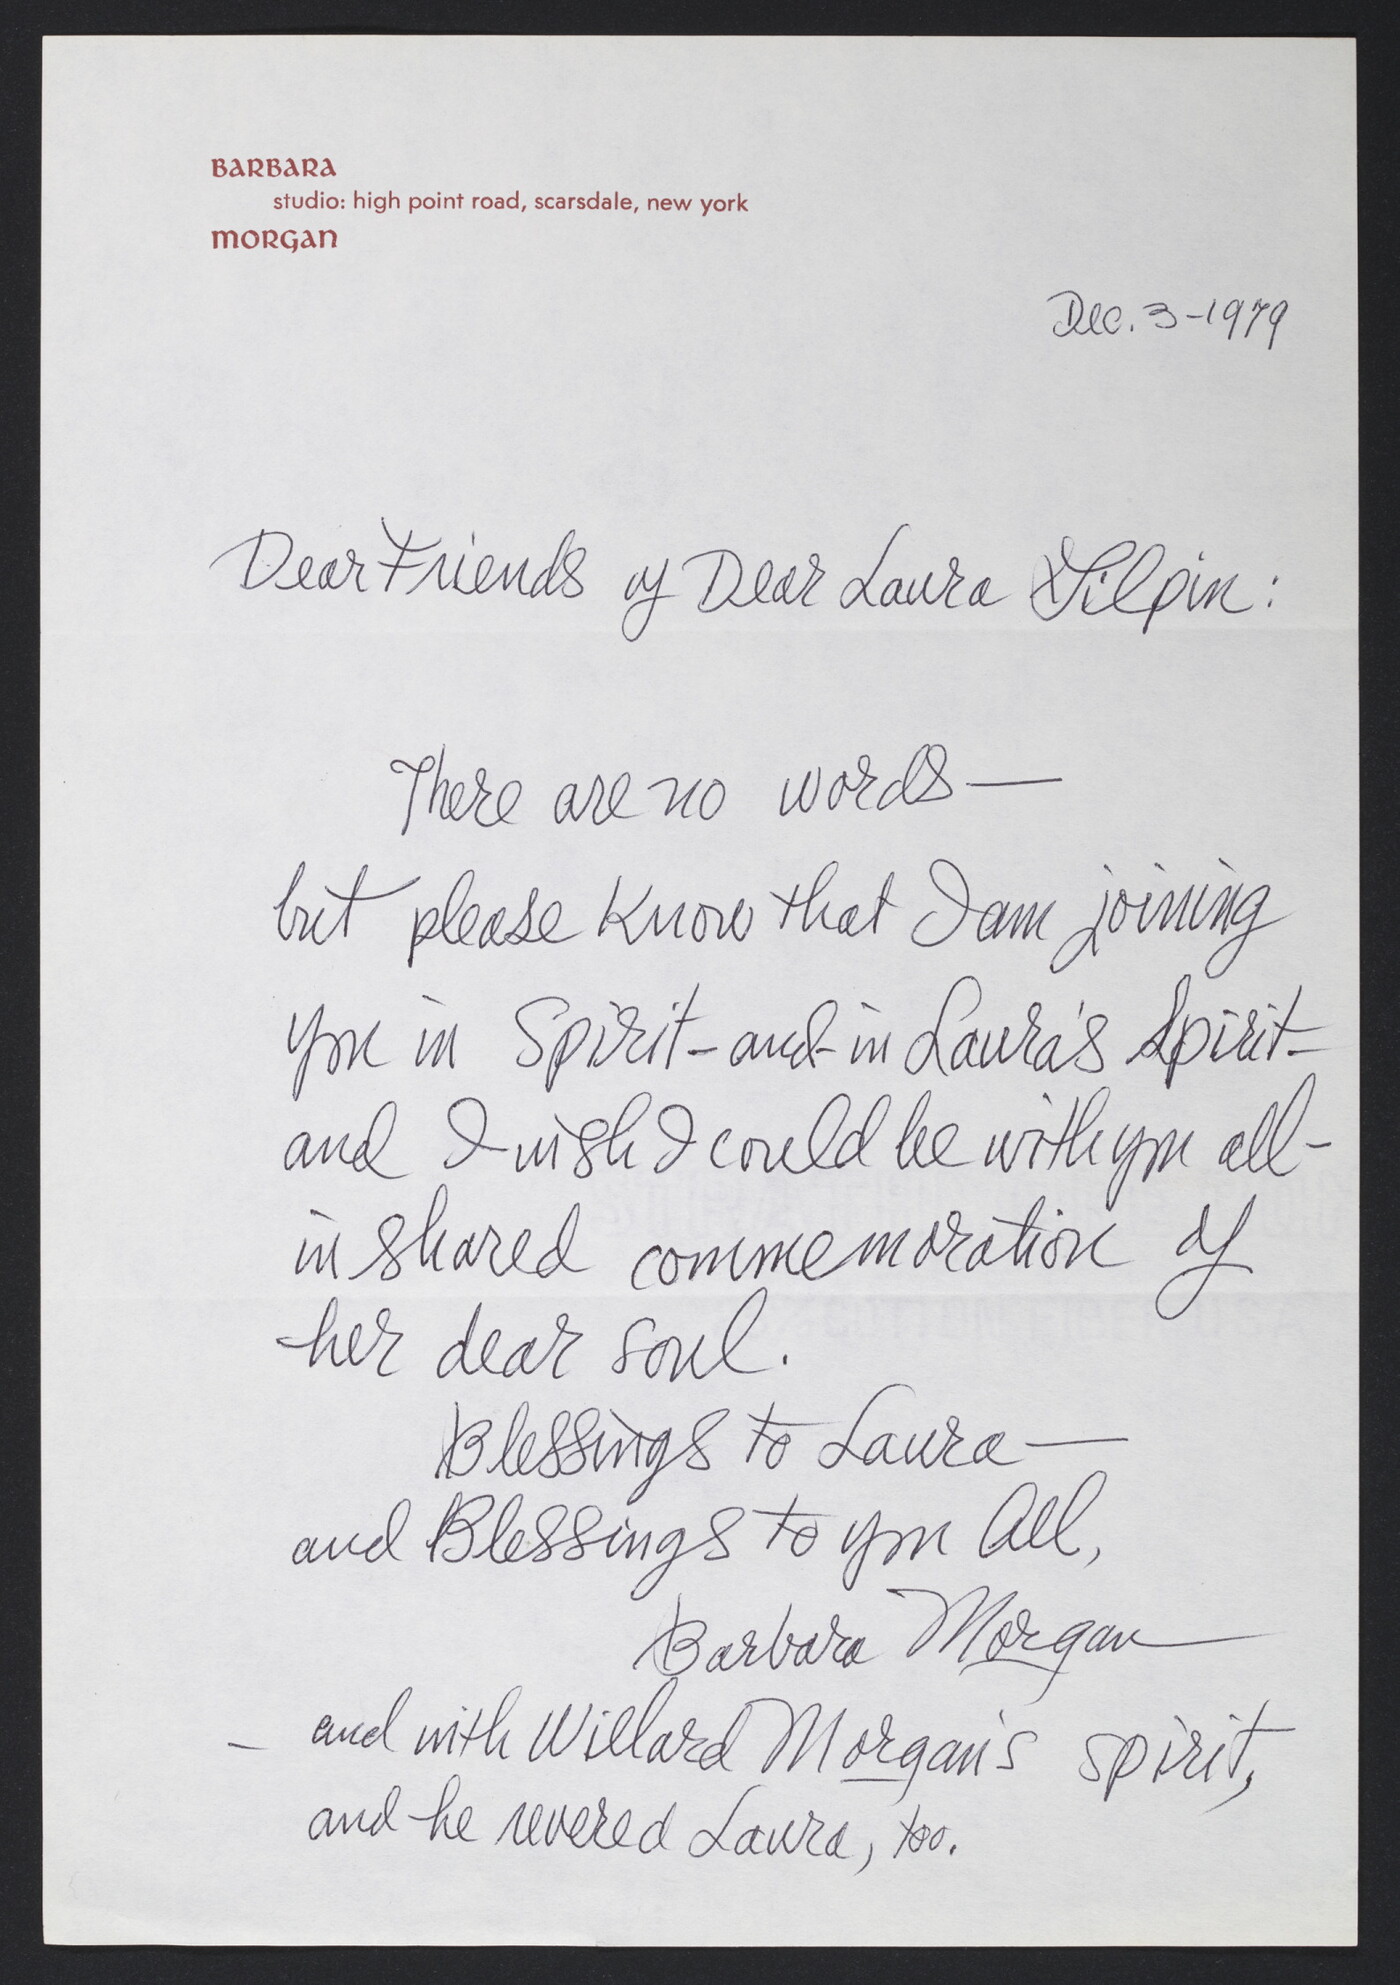 BARBARA
studio: high point road, scarsdale, new york
MORGAN
Dec. 3-1979
Dear Friends of Dear Laura Gilpin:
There are no words—
but please know that I am joining
you in Spirit- and-in Laura's Spirit-
and I wish I could be with you all-
in shared commemoration of
her dear soul.
Blessings to Laura—
and Blessings to you All,
Barbara Morgan
- and with Willard Morgan's spirit,
and he revered Laura, too.